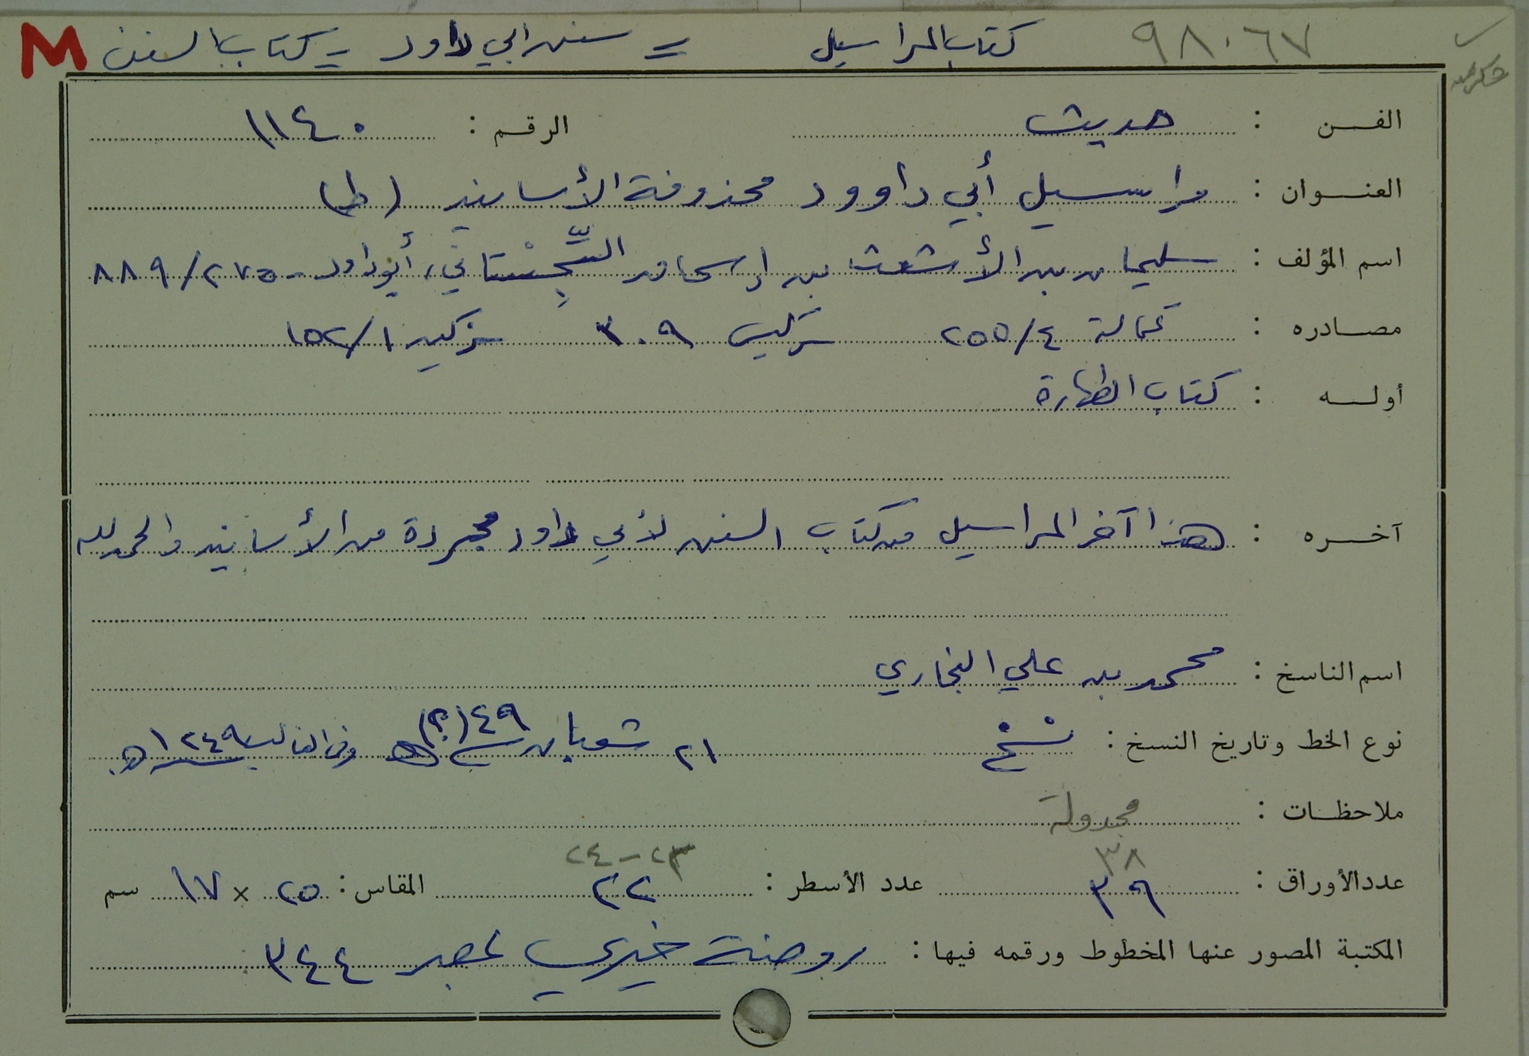 ٩٨٠٦٧ كتاب المراسيل = سنن ابي داود = كتاب السنن M
الفن : حديث الرقم : ١١٤٠
العنوان : مراسيل أبي داوود محذوفة الأسانيد (ط)
اسم المؤلف : سليمان بن الأشعث بن إسحاق السِّجِسْتاني، أبو داود - ٢٧٥/٨٨٩
مصادره : كحالة ٤/٢٥٥ سركيس ٣٠٩ سزكين ١/١٥٢
أوله : كتاب الطهارة
آخره : هذا آخر المراسيل من كتاب السنن لأبي داود مجردة من الأسانيد والحمد لله
اسم الناسخ : محمد بن علي البخاري
نوع الخط وتاريخ النسخ : نسخ ٢١ شعبان ٤٩(؟) هـ وفي الغالب ١٢٤٩ هـ
ملاحظات : مجدولة
٣٨ ٢٣-٢٤
عدد الأوراق : ٣٩ عدد الأسطر : ٢٢ المقاس : ٢٥ × ١٧ سم
المكتبة المصور عنها المخطوط ورقمه فيها : روضة خيري بمصر ٣٤٤